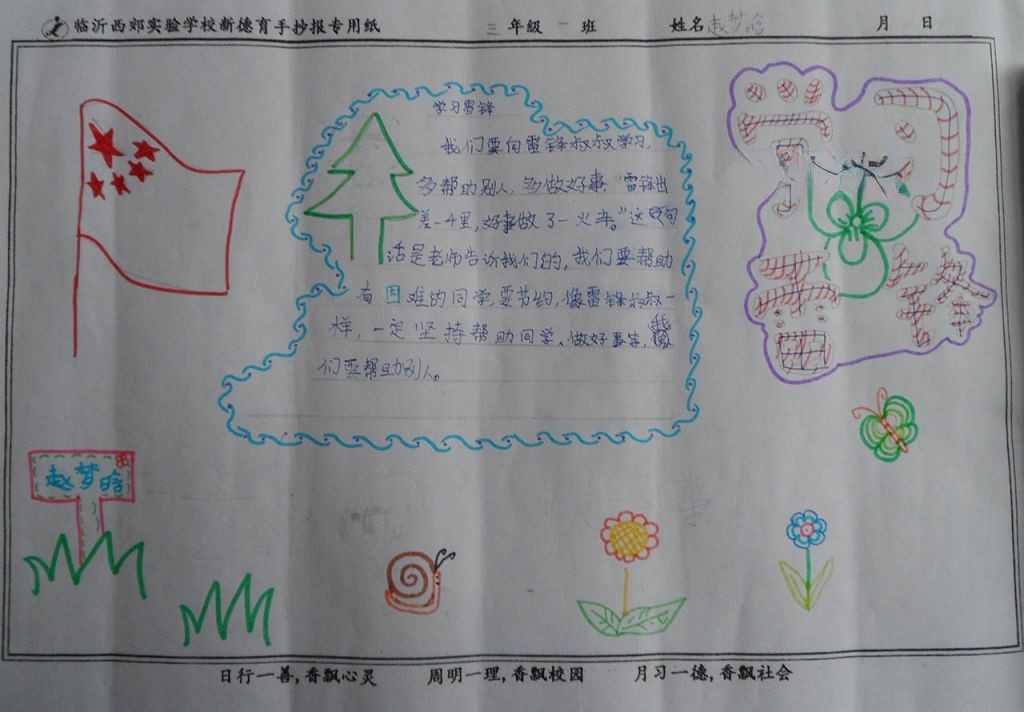 临沂西郊实验学校新德育手抄报专用纸 三 年级 一 班 姓名赵梦晗 月 日
学习雷锋
我们要向雷锋叔叔学习,
多帮助别人,多做好事."雷锋出
差一千里,好事做了一火车."这句
话是老师告诉我们的,我们要帮助
有困难的同学,要节约,像雷锋叔叔一
样,一定坚持帮助同学、做好事,我
们要帮助别人。
学习
雷锋
赵梦晗
日行一善,香飘心灵 周明一理,香飘校园 月习一德,香飘社会